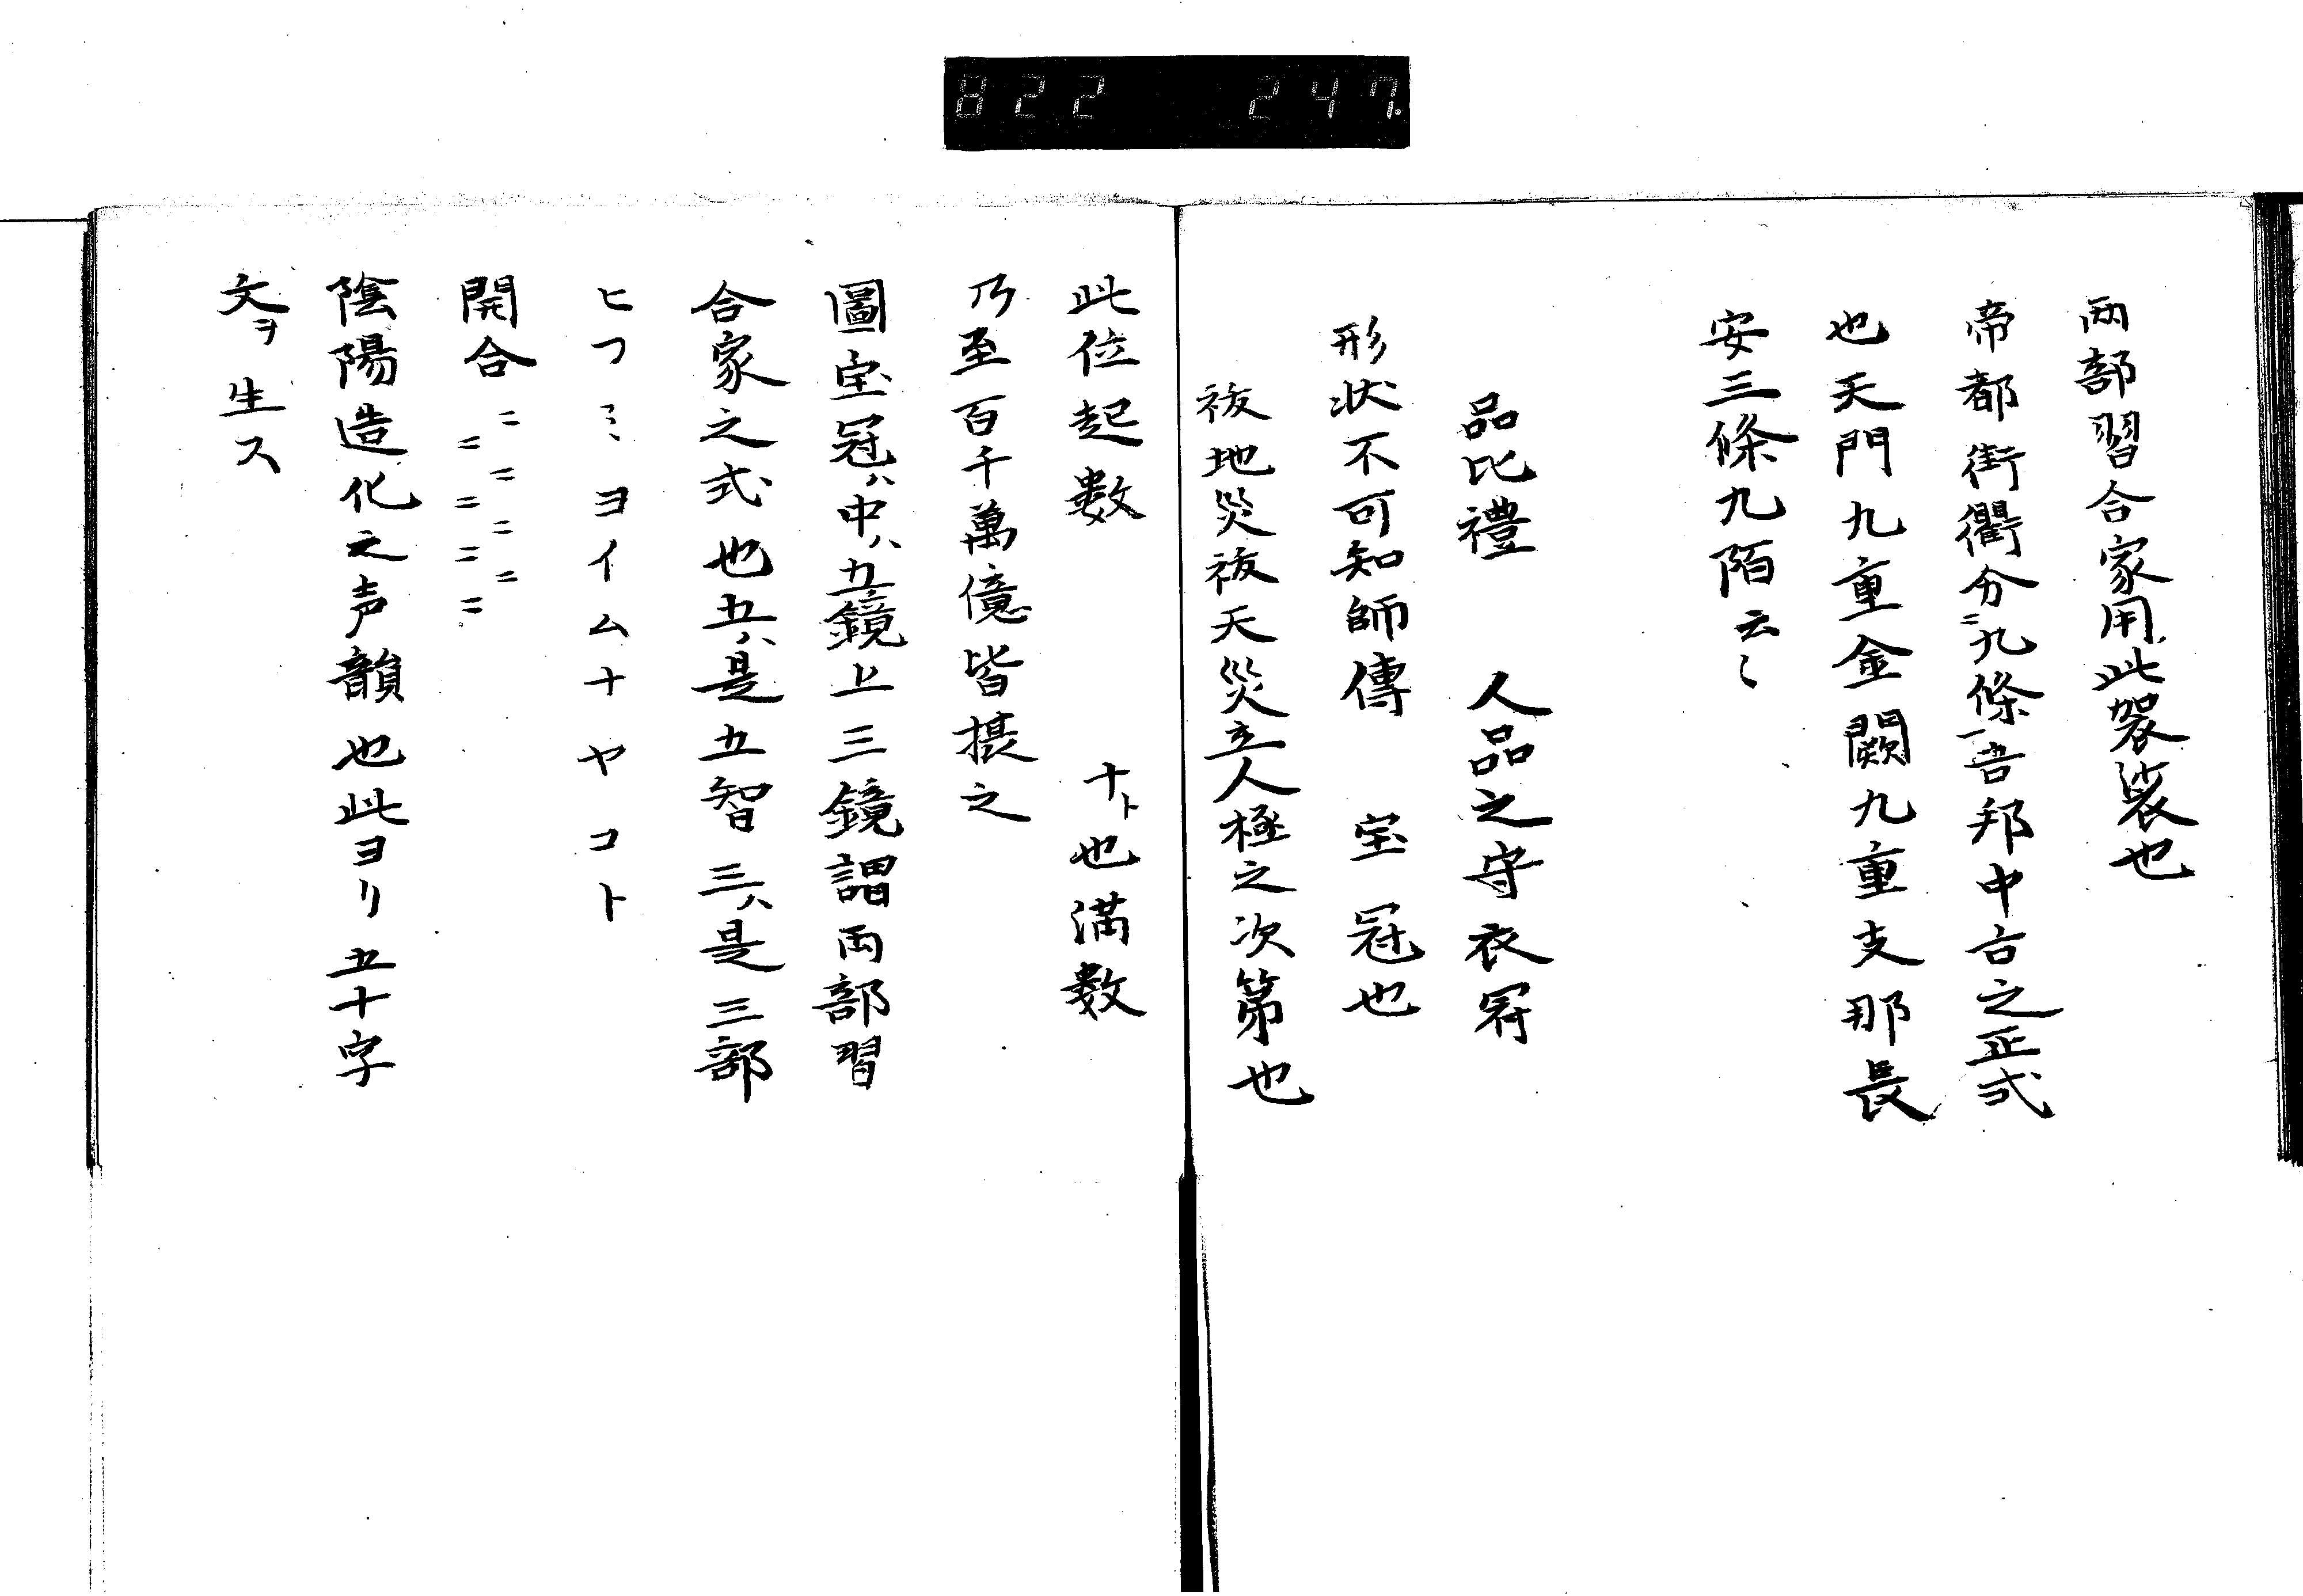 822 247.
両部習合家用此袈裟也
帝都街衢分ニ九條一吾邦中古之正式
也天門九重金闕九重支那長
安三條九陌云〻
品比禮 人品之守衣冠
形状不可知師傳 宝冠也
祓地災祓天災立人極之次第也
此位起數 十ト也満數
乃至百千萬億皆摂之
圖宝冠ハ中ハ五鏡上三鏡謂両部習
合家之式也五ハ是五智三ハ是三部
ヒフミヨイムナヤコト
開合ニニニニニニニニ
陰陽造化之声韻也此ヨリ五十字
文ヲ生ス